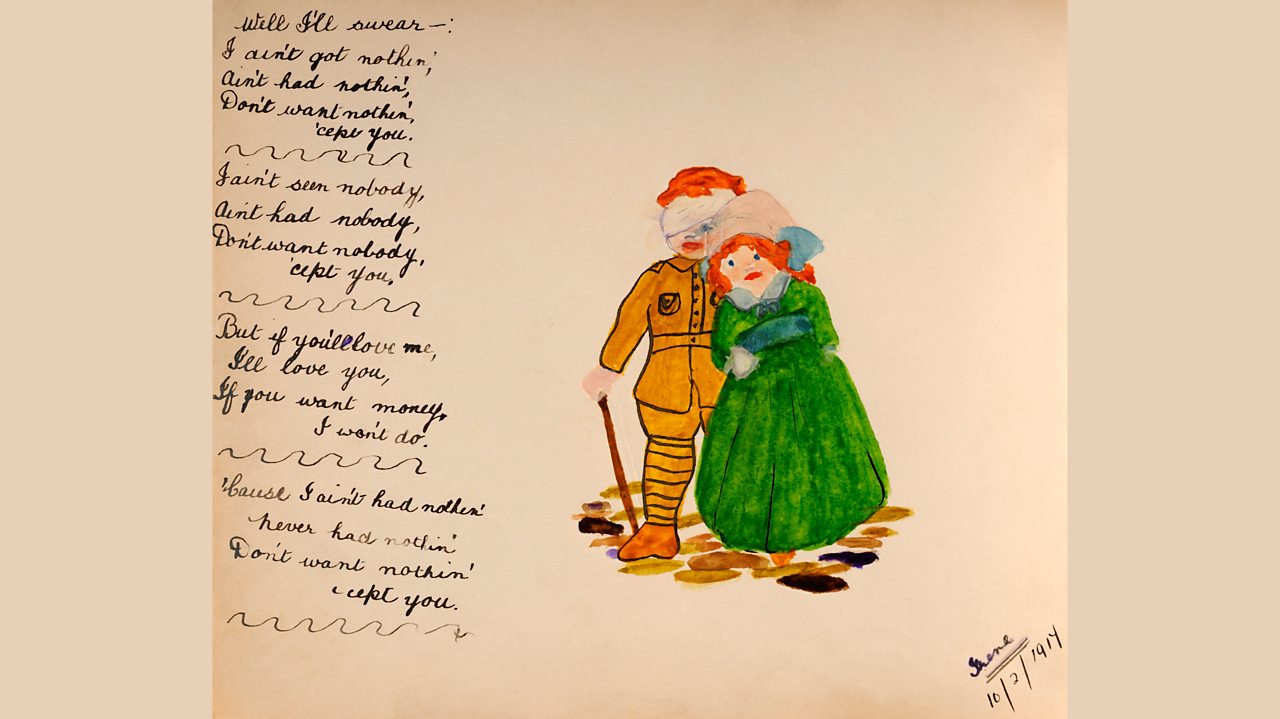 Well I'll swear —:
I ain't got nothin',
Ain't had nothin',
Don't want nothin',
'cept you.
I ain't seen nobody,
Ain't had nobody,
Don't want nobody,
'cept you.
But if you'll love me,
I'll love you,
If you want money,
I won't do.
'Cause I ain't had nothin'
never had nothin'
Don't want nothin'
'cept you.
Irene
10/2/1917